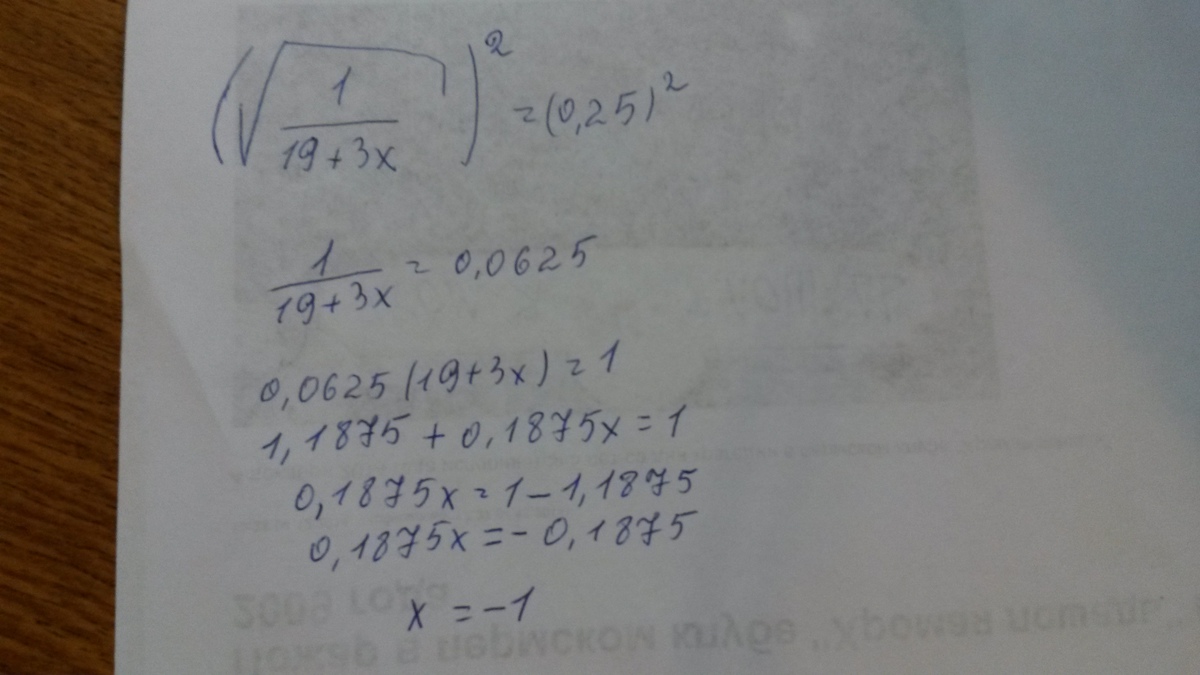 (√(1/(19+3x)))² = (0,25)²
1/(19+3x) = 0,0625
0,0625(19+3x) = 1
1,1875 + 0,1875x = 1
0,1875x = 1 - 1,1875
0,1875x = - 0,1875
x = -1
2009 года
Пожар в пермском клубе „Хромая